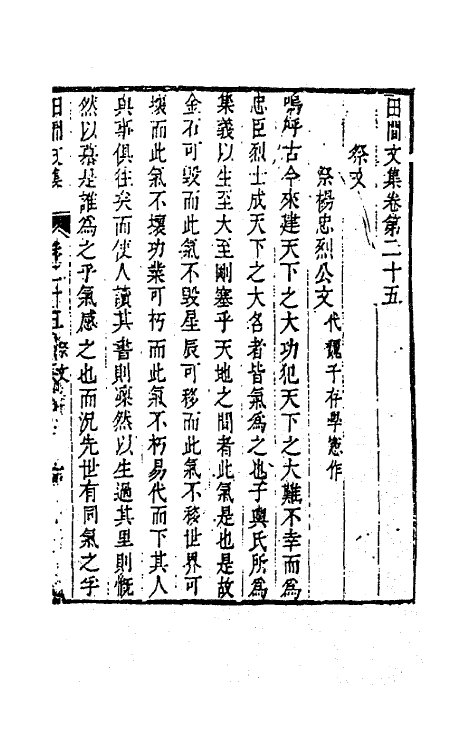 田間文集卷第二十五
祭文
祭楊忠烈公文 代魏子存學憲作
嗚呼古今來建天下之大功犯天下之大難不幸而爲
忠臣烈士成天下之大名者皆氣爲之也子輿氏所爲
集義以生至大至剛塞乎天地之間者此氣是也是故
金石可毀而此氣不毀星辰可移而此氣不移世界可
壞而此氣不壞功業可朽而此氣不朽易代而下其人
與事俱往矣而使人讀其書則凜然以生過其里則慨
然以慕是誰爲之乎氣感之也而況先世有同氣之乎
田間文集 卷二十五 祭文